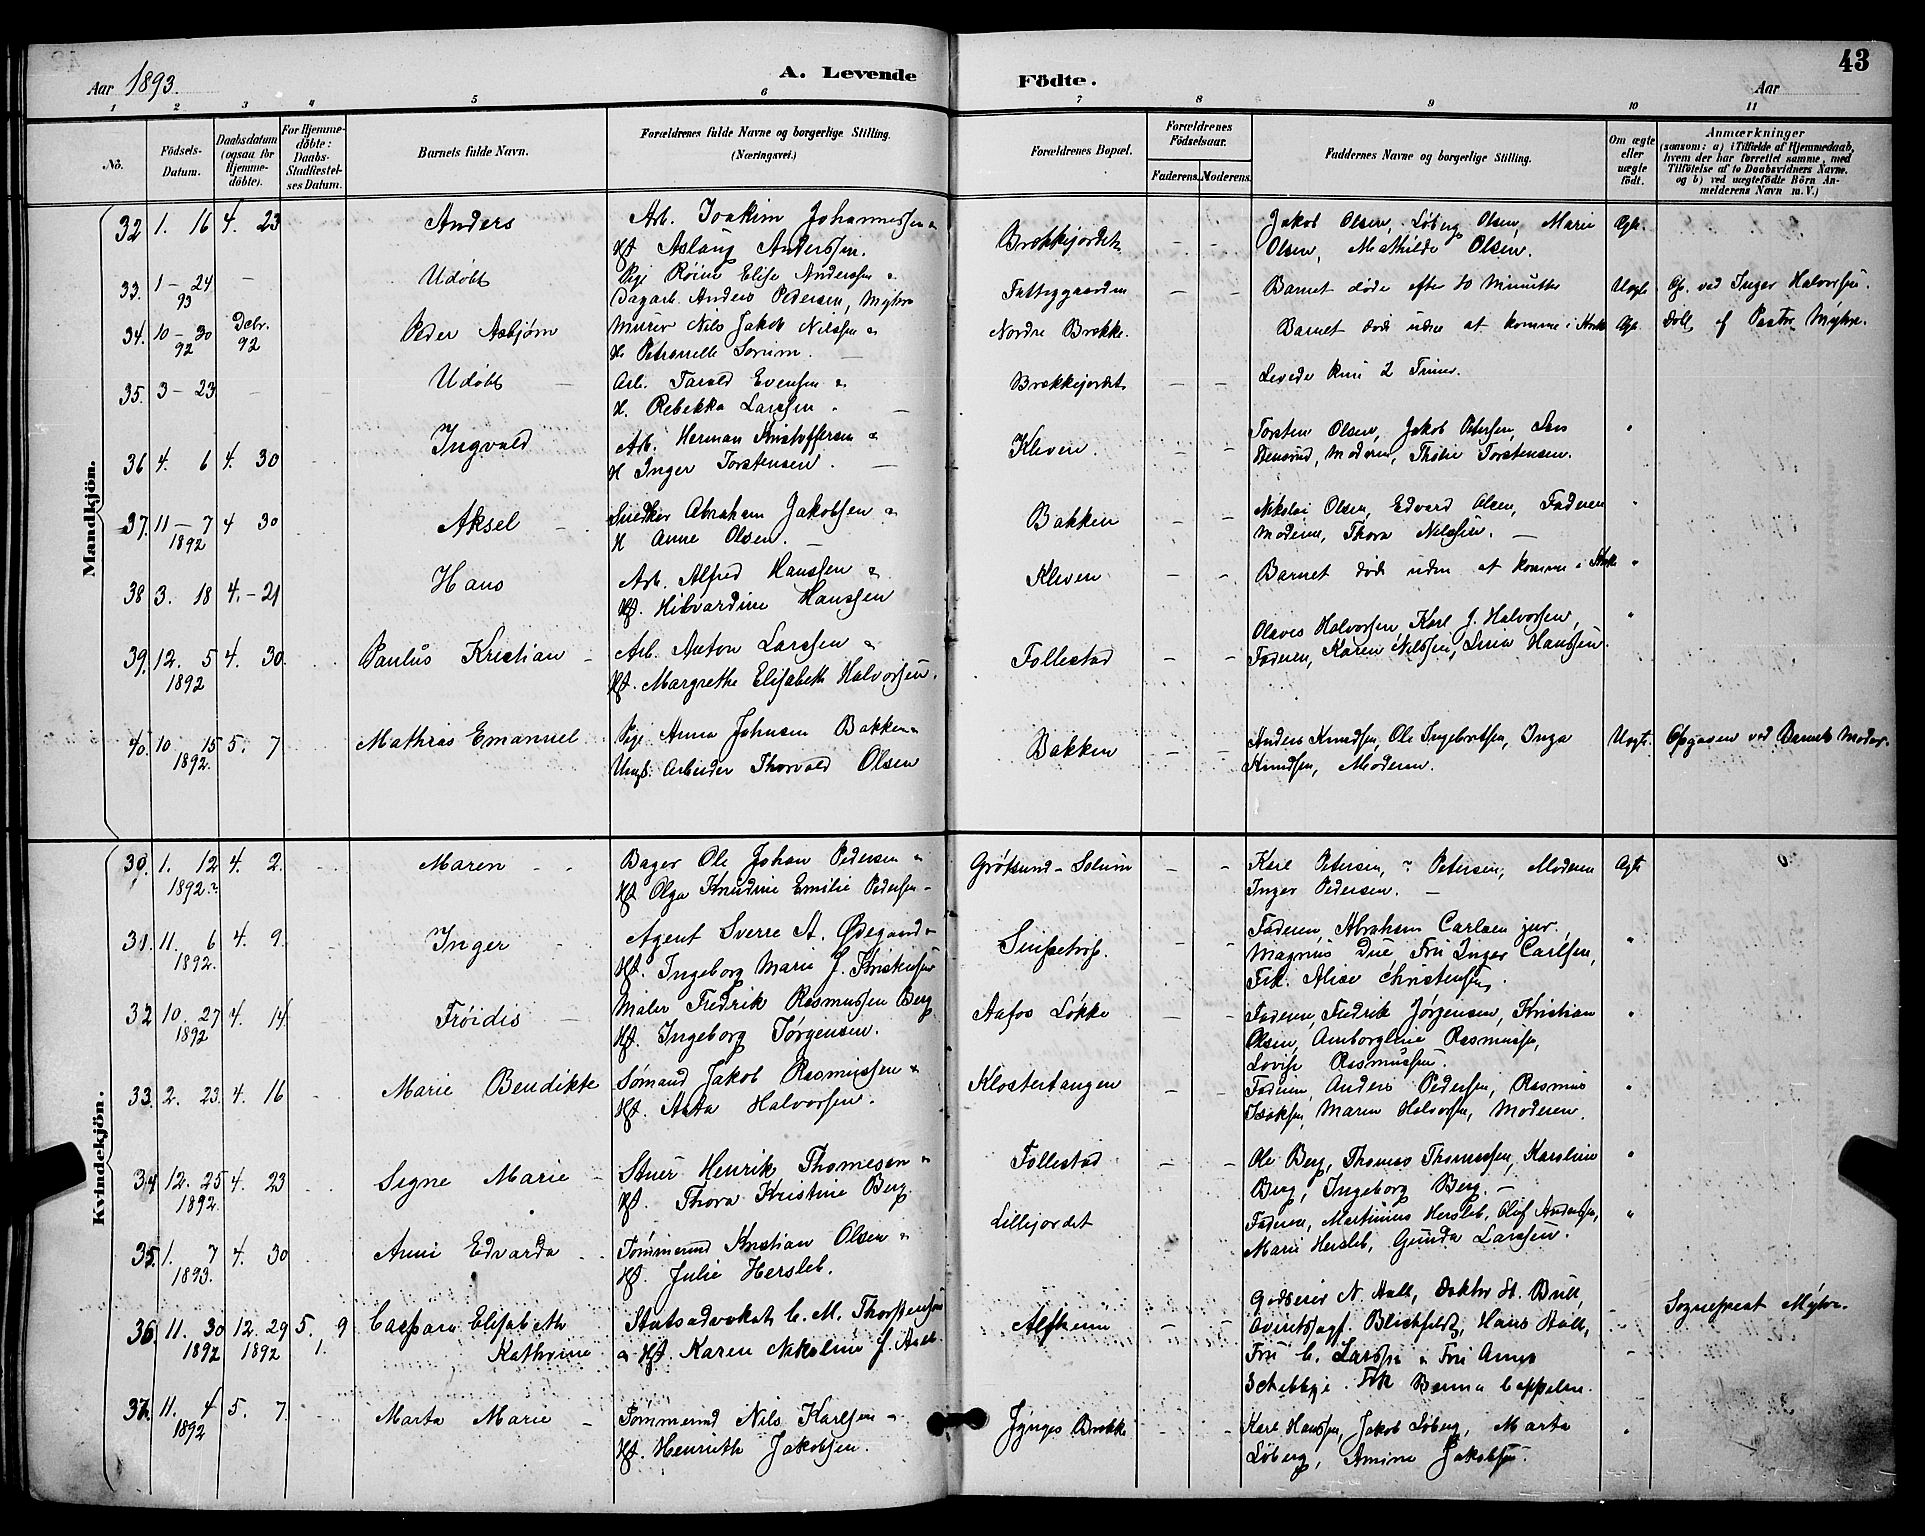 43
Aar 1893.
A. Levende
Födte.
Aar
1 2 3 4 5 6 7 8 9 10 11
No.
Födsels-Datum.
Daabsdatum (ogsaa for Hjemmedöbte).
For Hjemmedöbte: Daabs-Stadfæstelses Datum.
Barnets fulde Navn.
Forældrenes fulde Navne og borgerlige Stilling.
(Næringsvei.)
Forældrenes Bopæl.
Forældrenes Födselsaar.
Faderens. Moderens.
Faddernes Navne og borgerlige Stilling.
Om ægte eller uægte födt.
Anmærkninger
(saasom: a) i Tilfælde af Hjemmedaab, hvem der har forrettet samme, med Tilföielse af to Daabsvidners Navne, og b) ved uægtefödte Börn Anmelderens Navn m. V.)
Mandkjön.
32 1. 16 4. 23 Anders Arb. Joakim Johannessen &
Hf. Aslaug Anderssen. Brækkejordet Jakob Olsen, Løberg Olsen, Marie
Olsen, Mathilde Olsen. Ægte.
33. 1 - 24 93 Udøbt Pige Elise Anderssen &
Dagarb. Anders Pedersen, Myhre Fattiggaarden Barnet døde efter 10 Minutter Uægte ved Inger Halvorsen.
34. 10 - 30 92 Debr. 92 Peder Asbjørn Murer Nils Jakob Nilssen &
H. Petronelle Nordre Brække. Barnet døde uden at komme i Kirke Ægt. Døbt af Pastor Myhre.
35. 3 - 23 Udøbt Arb. Tarald Evensen &
H. Rebekka Larssen. Brækkejordet Levede kun 2 Timer.
36 4. 6 4. 30 Ingvald Arb. Herman Kristoffersen &
H Inger Torstensen. Kleven. Torsten Olsen, Jakob
Moderen, Torstensen.
37. 11 - 7 1892 4 30 Aksel Snedker Abraham Jakobsen &
H Anne Olsen. Bakken Nikolai Olsen, Edvard Olsen, Faderen
Moderen, Thora Nilssen.
38 3. 18 4. - 21 Hans Arb. Alfred Hanssen &
Hf. Hanssen Kleven Barnet døde uden at komme i Kirke
39. 12. 5 1892 4. 30. Paulus Kristian Arb. Anton Larssen &
Hf. Margrethe Elisabeth Halvorsen. Follestad Olaves Halvorsen, Karl J. Halvorsen,
Faderen, Karen Nilssen, Lina Hanssen.
40. 10 15 1892. 5. 7 Mathias Emanuel Pige Anna Johnsen Bakken &
Ungk. Arbeider Thorvald Olsen Bakken Anders Knudsen, Ole Ingebretsen, Inga
Knudsen, Moderen. Uægt. Opgaven ved Barnets Moder.
Kvindekjön.
30. 1. 12 1892? 4. 2. Maren Bager Ole Johan Pedersen &
Hf Olga Knudine Emilie Pedersen Grøtsund - Solum Karl Petersen, ? Petersen, Moderen
Inger Pedersen. Ægte
31. 11. 6 1892. 4. 9. Inger Agent Sverre A. Ødegaard &
Hf. Ingeborg Marie J. Kristensen Faderen, Abraham Carlsen jur.
Magnus Due, Fru Inger Carlsen,
Frk. Alise Christensen.
32 10. 27 1892 4. 14 Frøidis Maler Fredrik Rasmussen Berg
Hf. Ingeborg Jørgensen. Aafos Løkke Faderen, Fredrik Jørgensen, Kristian
Olsen, Amborgline Rasmussen,
Lovise Rasmussen.
33. 2. 23. 4. 16 Marie Bendikte Sømand Jakob Rasmussen &
Hf. Asta Halvorsen. Klostertangen Faderen, Anders Pedersen, Rasmus
Isaksen, Maren Halvorsen, Moderen.
34 12. 25 1892. 4. 23 Signe Marie Stuer Henrik Thomesen &
Hf. Thora Kristine Berg. Follestad Ole Berg, Thomas Thomessen, Karoline
Berg, Ingeborg Berg.
35. 1. 7 1893. 4. 30 Anni Edvarda Tømmermd Kristian Olsen &
Hf. Julie Hersleb. Lillejordet Faderen, Martinius Hersleb, Oluf Anderssen,
Marie Hersleb, Gunda Larssen.
36 11. 30 1892 12. 29 1892 5. 9 1. Caspara Elisabeth
Kathrine Statsadvokat C. M. Thorstensen
& Hf. Karen Nikoline J. Aall Alfheim Godseier N. Aall, Doktor St. Bull,
Blichfeldt, Hans Aall,
Fru C. Larssen & Fru Anna
Schebbye. Frk Cappelen. Sogneprest Myhre.
37. 11. 4 1892 5. 7. Marta Marie Tømmermd Nils Karlsen &
Hf. Henriette Jakobsen. Brække Karl Hanssen, Jakob Løberg, Marta
Løberg, Amine Jakobsen.